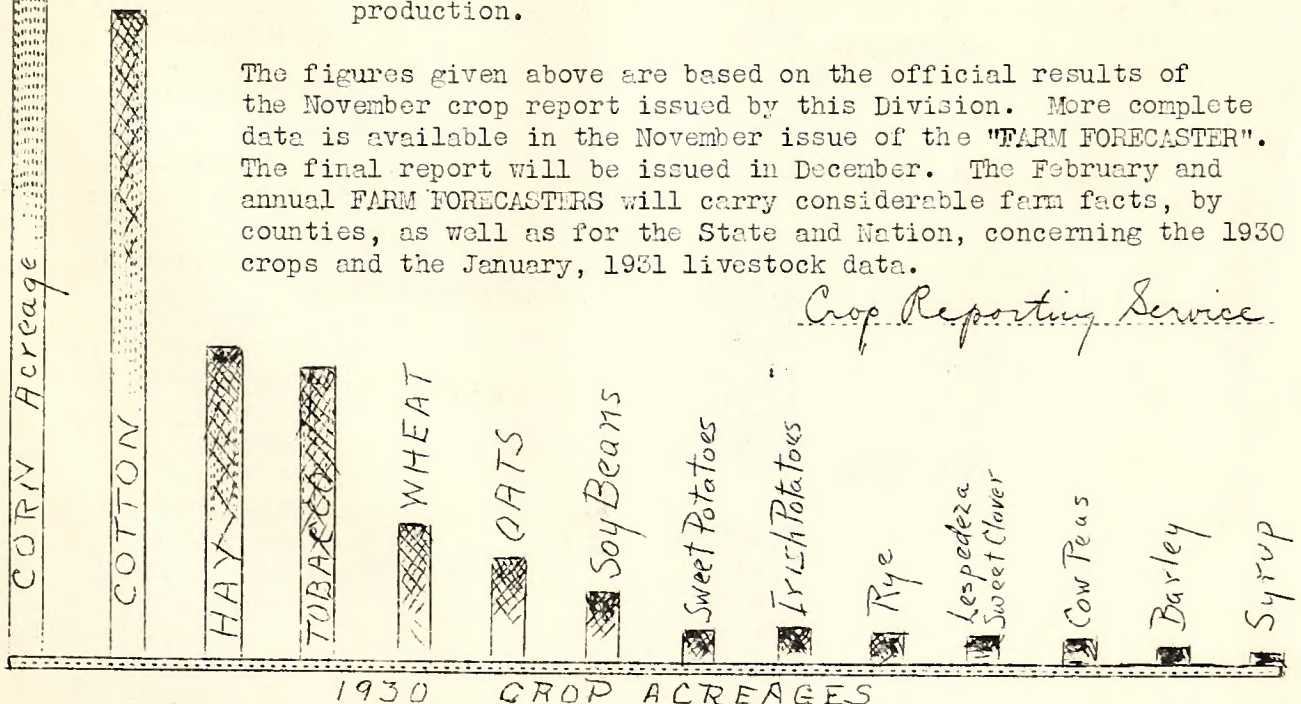 production.
The figures given above are based on the official results of
the November crop report issued by this Division. More complete
data is available in the November issue of the "FARM FORECASTER".
The final report will be issued in December. The February and
annual FARM FORECASTERS will carry considerable farm facts, by
counties, as well as for the State and Nation, concerning the 1930
crops and the January, 1931 livestock data.
Crop Reporting Service
CORN Acreage
COTTON
HAY
TOBACCO
WHEAT
OATS
Soy Beans
Sweet Potatoes
Irish Potatoes
Rye
Lespedeza
Sweet Clover
Cow Peas
Barley
Syrup
1930 CROP ACREAGES